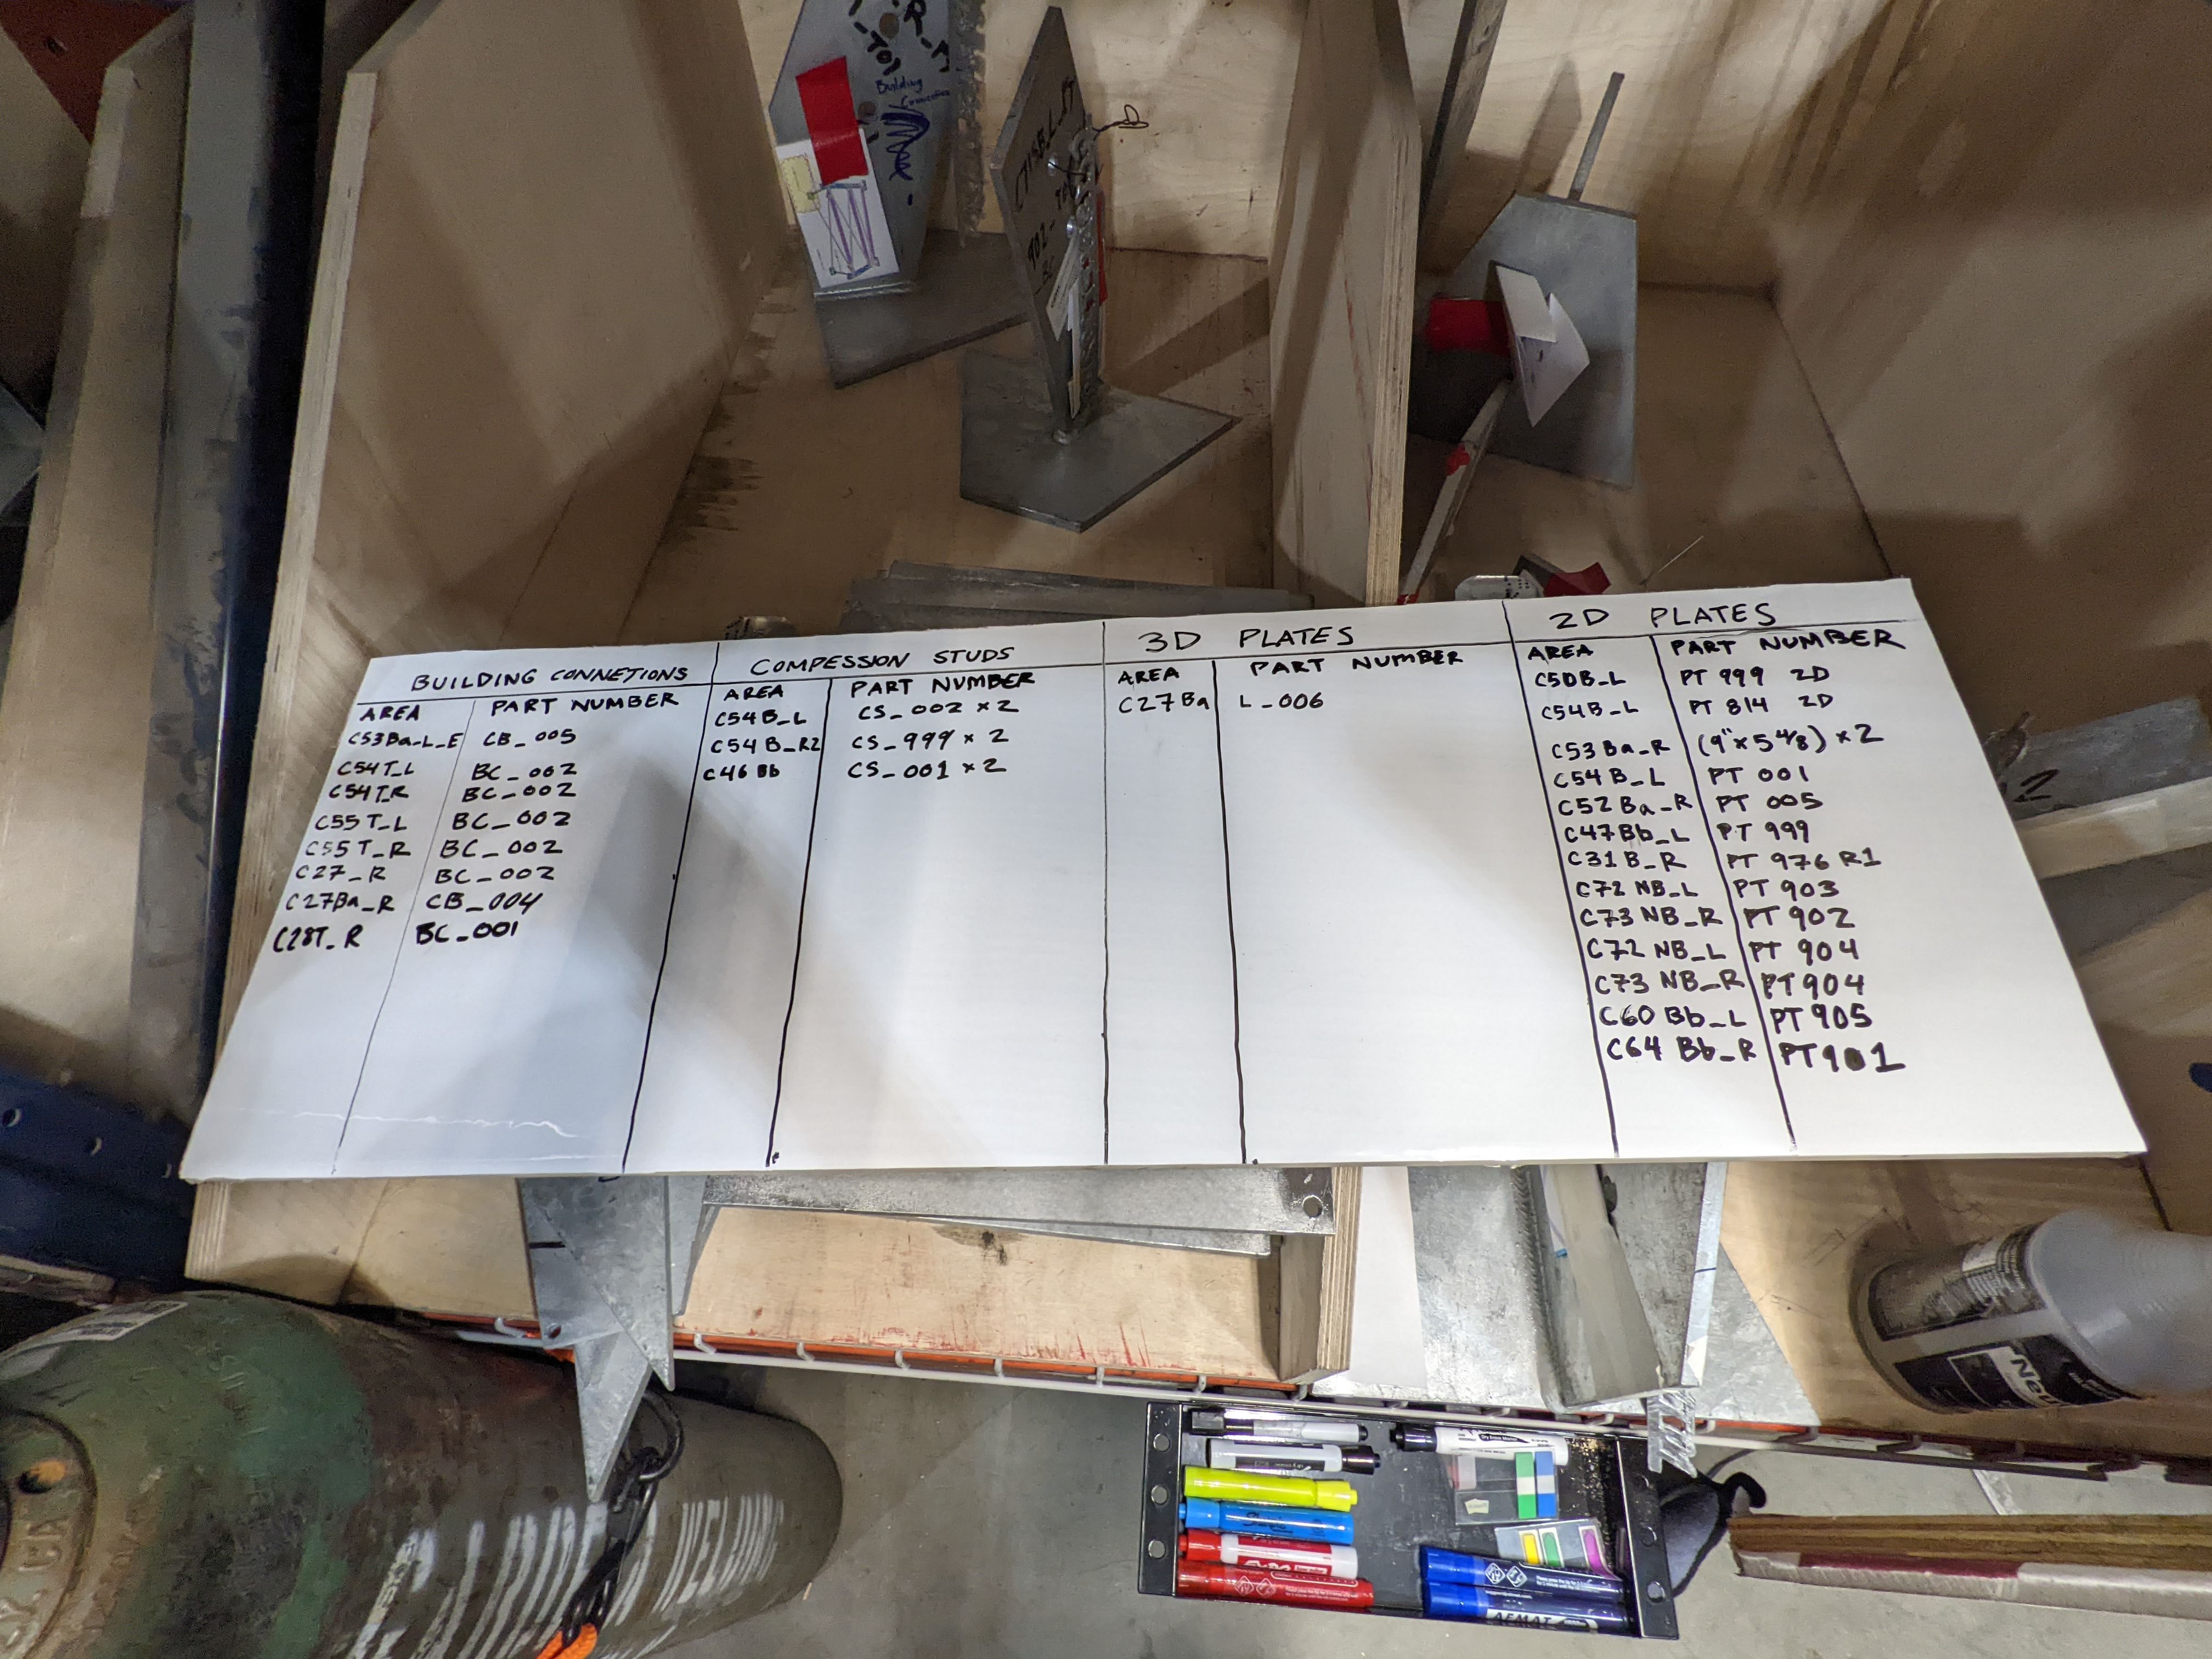 BUILDING CONNETIONS
AREA PART NUMBER
C53Ba_L_E CB_005
C54T_L BC_002
C54T_R BC_002
C55T_L BC_002
C55T_R BC_002
C27_R BC_002
C27Ba_R CB_004
C28T_R BC_001
COMPESSION STUDS
AREA PART NUMBER
C54B_L CS_002 x 2
C54B_R2 CS_999 x 2
C46Bb CS_001 x 2
3D PLATES
AREA PART NUMBER
C27Ba L_006
2D PLATES
AREA PART NUMBER
C50B_L PT 999 2D
C54B_L PT 814 2D
C53Ba_R (9"x5 4/8) x 2
C54B_L PT 001
C52Ba_R PT 005
C47Bb_L PT 999
C31B_R PT 976 R1
C72 NB_L PT 903
C73 NB_R PT 902
C72 NB_L PT 904
C73 NB_R PT 904
C60 Bb_L PT 905
C64 Bb_R PT 901
Building
Connection
902-
2
WELDING
Sharpie
EXPO